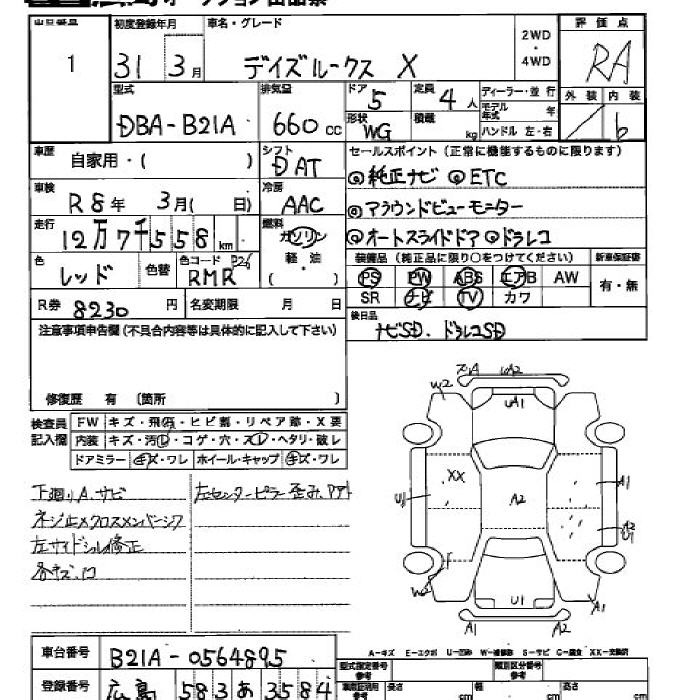 オークション出品票
出品番号 初度登録年月 車名・グレード 2WD・4WD 評価点
1 31 3月 デイズルークス X RA
型式 排気量 ドア 5 定員 4人 ディーラー・並行 外装 内装
DBA-B21A 660cc 形状 WG 積載 kg モデル年式 年 ハンドル 左・右 b
車歴 自家用・( ) シフト DAT セールスポイント(正常に機能するものに限ります)
◎純正ナビ ◎ETC
車検 R8年 3月( 日) 冷房 AAC
◎アラウンドビューモニター
走行 12万7千558km 燃料 ガソリン
◎オートスライドドア ◎ドラレコ
軽・油 ( )
色 レッド 色替 色コード RMR P26
装備品(純正品に限り○をつけてください) 新車保証書
PS PW ABS エアB AW 有・無
SR ナビ TV カワ
R券 8230円 名変期限 月 日
後日品
ナビSD. ドラレコSD
注意事項申告欄(不具合内容等は具体的に記入して下さい)
修復歴 有 〔箇所 〕
検査員記入欄 FW キズ・飛石・ヒビ割・リペア跡・X要
内装 キズ・汚レ・コゲ・穴・スレ・ヘタリ・破レ
ドアミラー キズ・ワレ ホイール・キャップ キズ・ワレ
下廻りA.サビ 左センターピラー歪み.
左サイドシル修正
W2 A2
UA1
XX
U1 A2 A1
A2
U1
W2 U1 A1
A1 A2
A-キズ E-エクボ U-凹み W-補修跡 S-サビ C-腐食 XX-交換済
車台番号 B21A-0564895
型式指定番号 参考 類別区分番号 参考
登録番号 広島 583 あ 3584
車庫証明用 参考 長さ cm 幅 cm 高さ cm